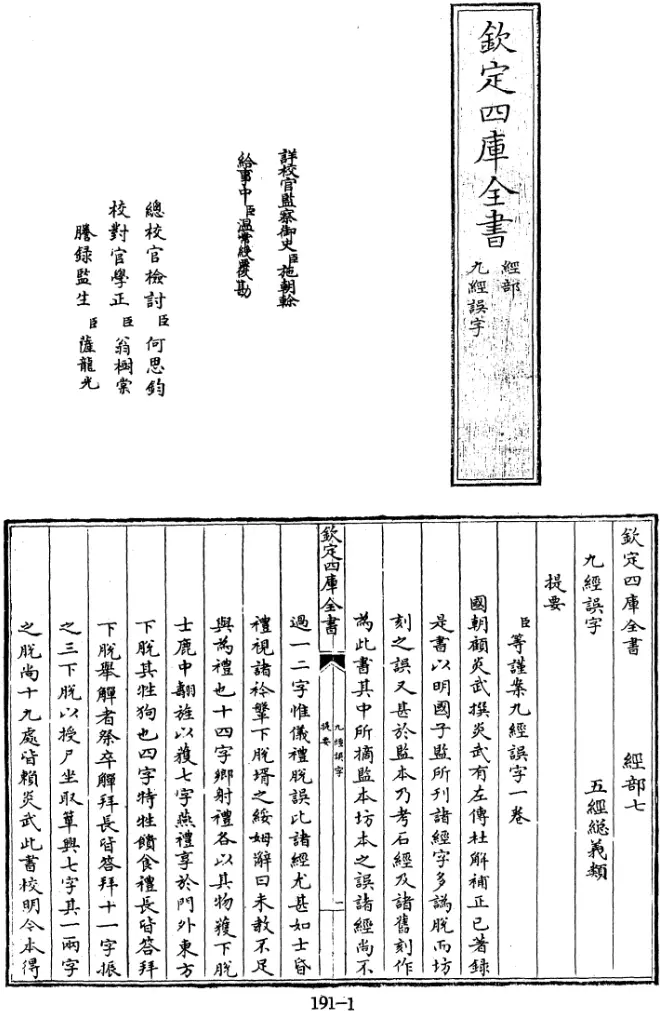 欽定四庫全書
經部
九經誤字
詳校官監察御史臣施朝幹
給事中臣溫常綬覆勘
總校官檢討臣何思鈞
校對官學正臣翁樹棠
謄錄監生臣薩龍光
欽定四庫全書 經部七
九經誤字 五經總義類
提要
臣等謹案九經誤字一卷
國朝顧炎武撰炎武有左傳杜解補正已著錄
是書以明國子監所刊諸經字多譌脫而坊
刻之誤又甚於監本乃考石經及諸舊刻作
為此書其中所摘監本坊本之誤諸經尚不
欽定四庫全書
九經誤字
提要
一
過一二字惟儀禮脫誤比諸經尤甚如士昏
禮視諸衿鞶下脫壻之綏姆辭曰未教不足
與為禮也十四字鄉射禮各以其物獲下脫
士鹿中翿旌以獲七字燕禮享於門外東方
下脫其牲狗也四字特牲饋食禮長皆答拜
下脫舉觶者祭卒觶拜長皆答拜十一字振
之三下脫以授尸坐取簞興七字其一兩字
之脫尚十九處皆賴炎武此書校明今本得
191-1